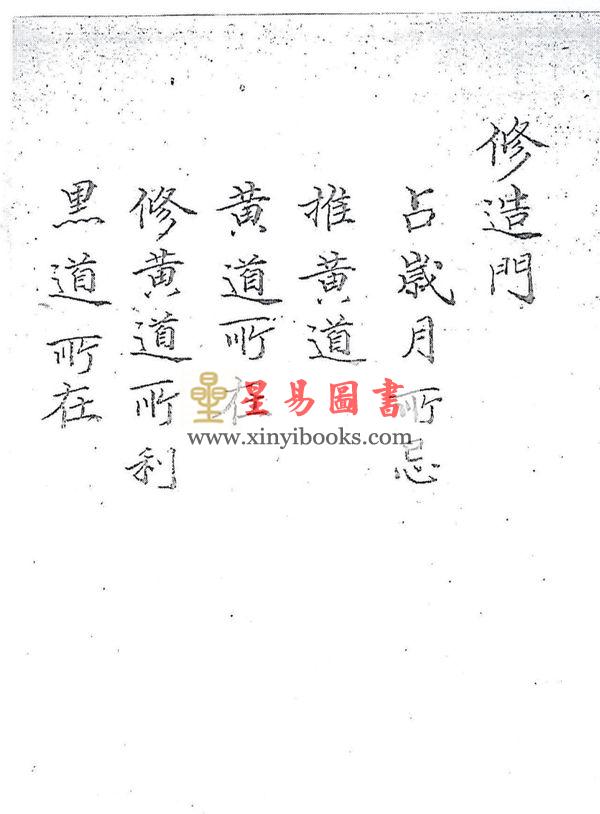 修造門
占歲月所忌
推黃道
黃道所在
修黃道所利
黒道所在
星易圖書
www.xinyibooks.com